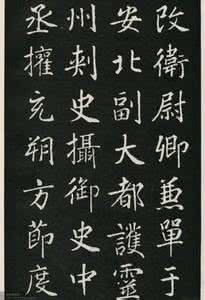 改衛尉卿兼單于
安北副大都護靈
州刺史攝御史中
丞擁充朔方節度